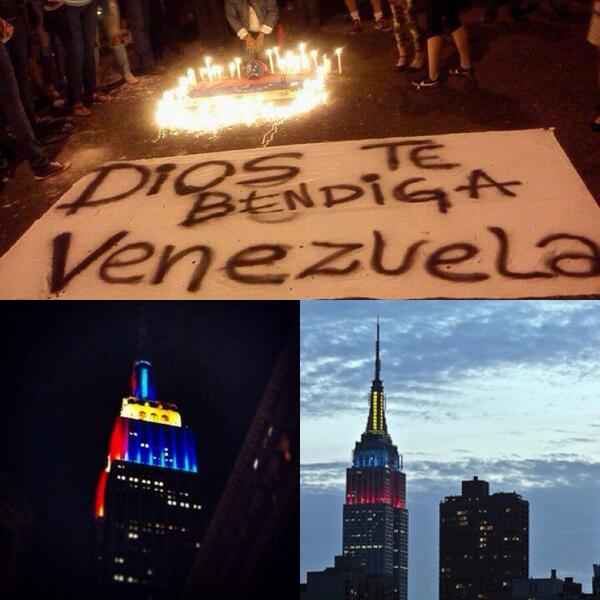 Dios TE
BENDiGA
Venezuela